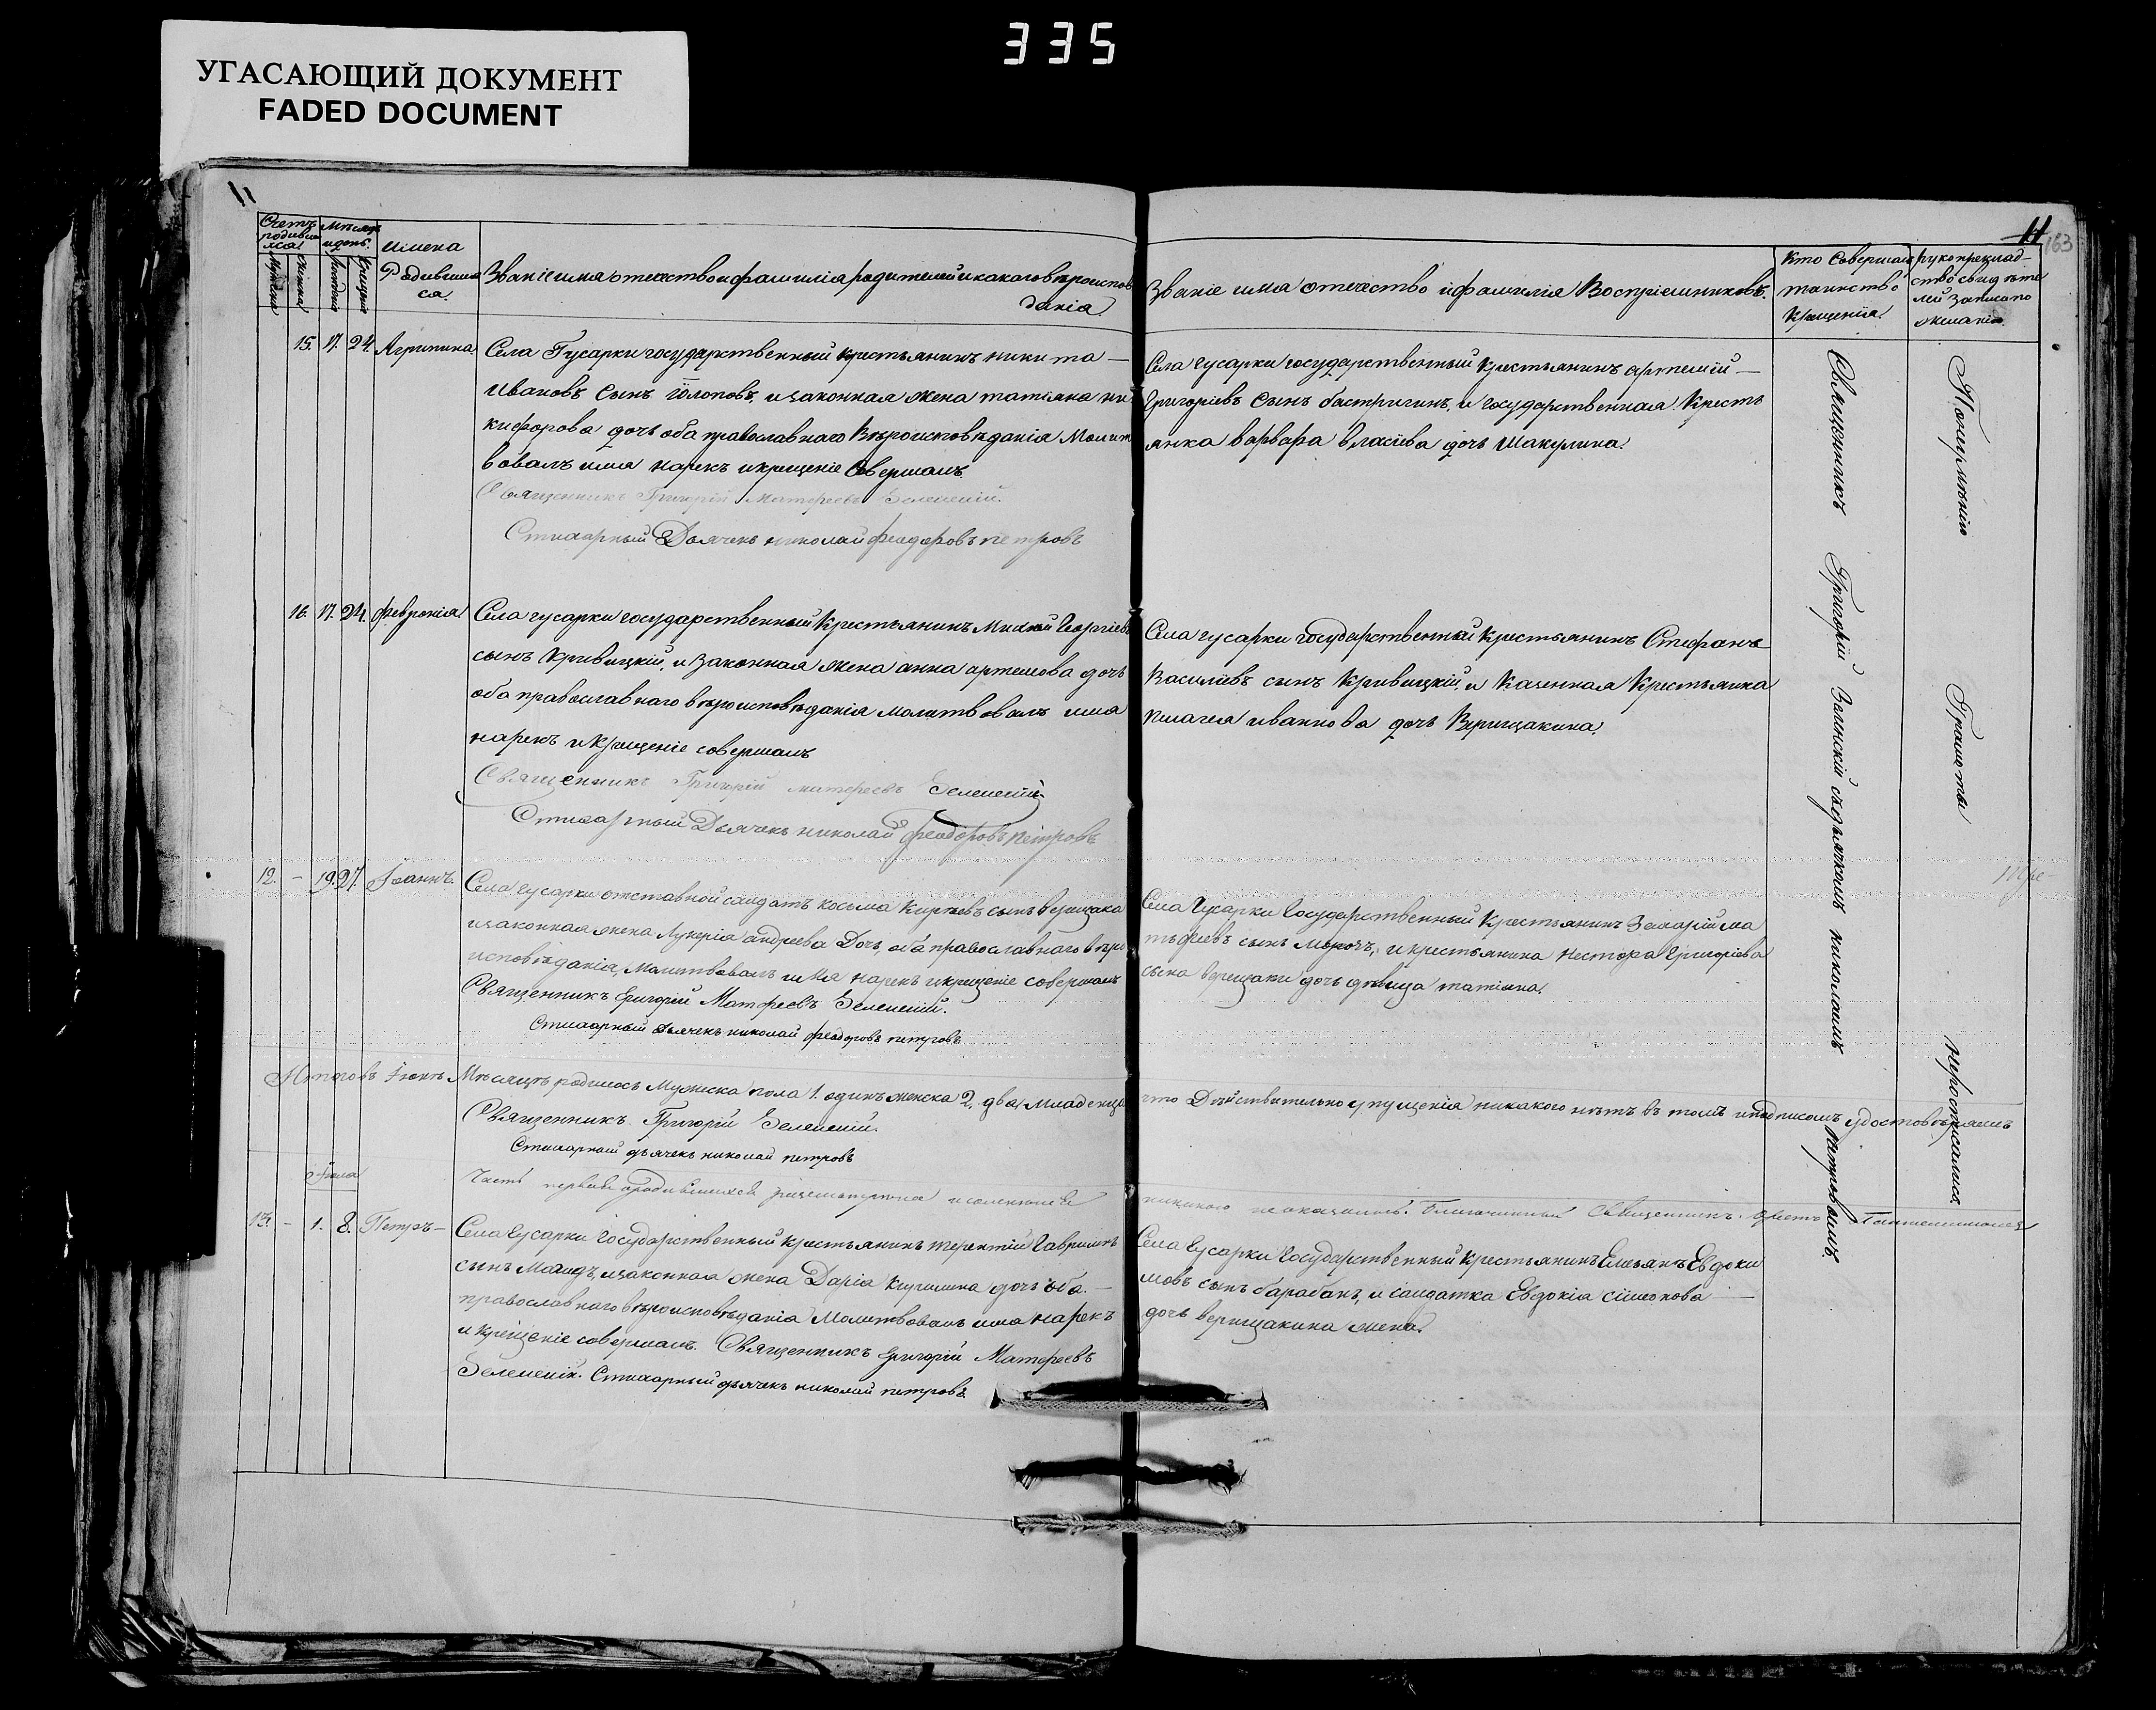 335
УГАСАЮЩИЙ ДОКУМЕНТ
FADED DOCUMENT
11
11
163
Счетъ родивших
Мѣсяцъ и день
Имена Родивших ся.
Званіе имя отечество и фамилія родителей и какого вѣроисповѣ
данія.
Званіе имя отечество и фамилія Воспріемниковъ.
Кто Совершалъ
таинство
Крещенія.
рукоприклад-
ство свидѣте
лей записи по
желанію.
15. 17. 24 Агрипина.
Села Гусарки государственный крестьянинъ никита
Ивановъ Сынъ, и законная жена татіана ни
кифорова дочь оба православнаго Вѣроисповѣданія Молит
вовалъ имя нарекъ и крещеніе Совершалъ
Священникъ Григорій Матфеевъ Зеленскій.
Стихарный Дьячекъ николай феодоровъ петровъ
Села гусарки государственный крестьянинъ артемій
Григоріевъ Сынъ бастригинъ, и государственная Кресть
янка варвара власіева дочь Шакулина.
16. 17. 24. февронія
Села гусарки государственный Крестьянинъ Георгіевъ
сынъ Кривицкій, и законная жена анна артемова дочь
оба православнаго вѣроисповѣданія молитвовалъ имя
нарекъ и Крещеніе совершалъ
Священникъ Григорій матфеевъ Зеленскій
Стихарный Дьячекъ николай феодоровъ петровъ
Села гусарки государственный крестьянинъ Стефанъ
Василіевъ сынъ Кривицкій, и Казенная Крестьянка
иванова дочь Верищакина.
12. - 19. 27. Іоаннъ.
Села гусарки отставной салдатъ косьма сынъ верищака
и законная жена Лукерія андреева Дочь, оба православнаго вѣро
исповѣданія, Молитвовалъ имя нарекъ и крещеніе совершалъ
Священникъ Григорій Матфеевъ Зеленскій.
Стихарный дьячекъ николай феодоровъ петровъ
Села Гусарки Государственный Крестьянинъ Захарій ма
тьфіевъ сынъ, и крестьянина нестора Григоріева
сына верещаки дочь дѣвица татіана.
Итого въ Іюнѣ Мѣсяцѣ родилось Мужеска пола 1. одинъ женска 2. два Младенца
что Дѣйствительно упущенія никакого нѣтъ въ томъ и подписомъ удостовѣряемъ
Священникъ Григорій Зеленскій.
Стихарный дьячекъ николай петровъ
Іюля
Часть первая о родившихся
никакого не оказалось. Благочинный Священникъ
13. - 1. 8. Петръ -
Села Гусарки Государственный крестьянинъ терентій Гавриловъ
сынъ, и законная жена Дарія Кирилина дочь оба.
православнаго вѣроисповѣданія Молитвовалъ имя нарекъ
и Крещеніе совершалъ. Священникъ Григорій Матфеевъ
Зеленскій. Стихарный дьячекъ николай петровъ.
Села Гусарки Государственный крестьянинъ Емельянъ Евдоки
мовъ сынъ барабанъ, и салдатка Евдокія сімонова
дочь верищакина жена.
Священникъ Григорій Зеленскій съ дьячкомъ николаемъ петровымъ.
По неумѣнію Грамоты нерописались